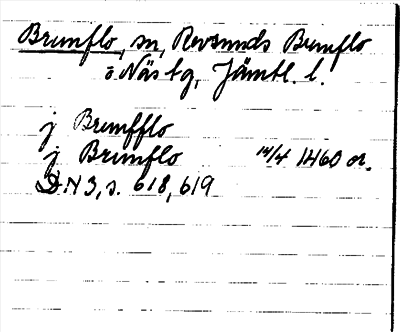 Brunflo, sn, Revsunds Brunflo
o Näs tg, Jämtl. l.
j Brunfflo
j Brunflo 14/4 1460 or.
DN 3, s. 618, 619